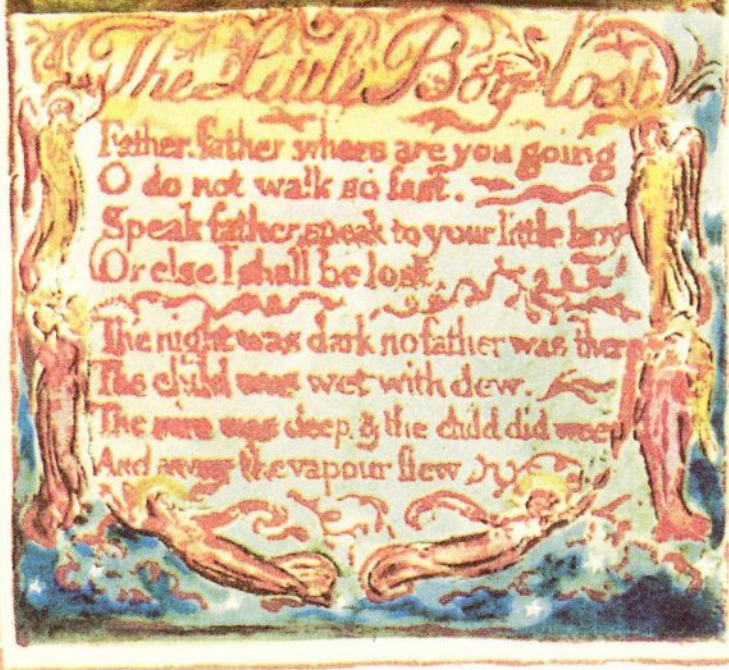 The Little Boy lost
Father, father where are you going
O do not walk so fast.
Speak father, speak to your little boy
Or else I shall be lost.
The night was dark no father was there
The child was wet with dew.
The mire was deep, & the child did weep
And away the vapour flew